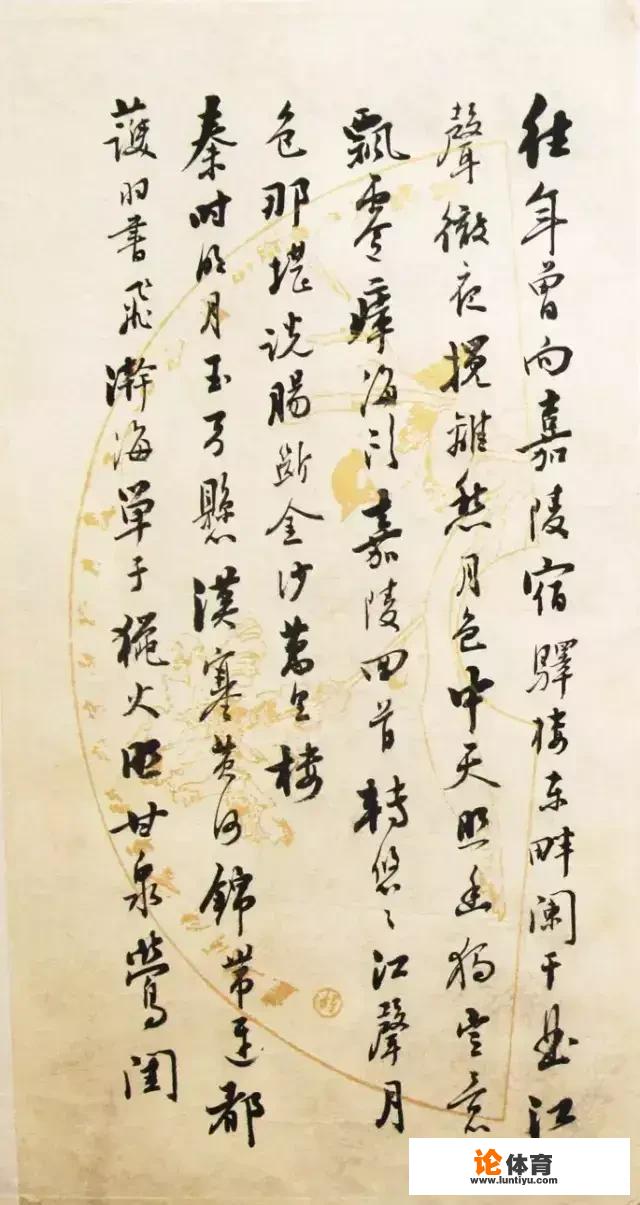 往年曾向嘉陵宿驛樓東畔闌干曲江
聲徹夜攪離愁月色中天照幽獨豈意
飄零瘴海頭嘉陵回首轉悠〻江聲月
色那堪說腸斷金沙萬里樓
秦時明月玉弓懸漢塞黃河錦帶連都
護羽書飛瀚海單于獵火照甘泉鶯閨
论体育
www.luntiyu.com